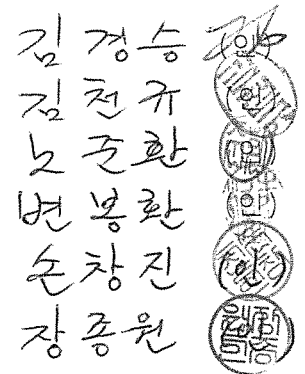 김경승 (인)
김천규 (인)
노준환 (인)
변봉환 (인)
손창진 (인)
장종원